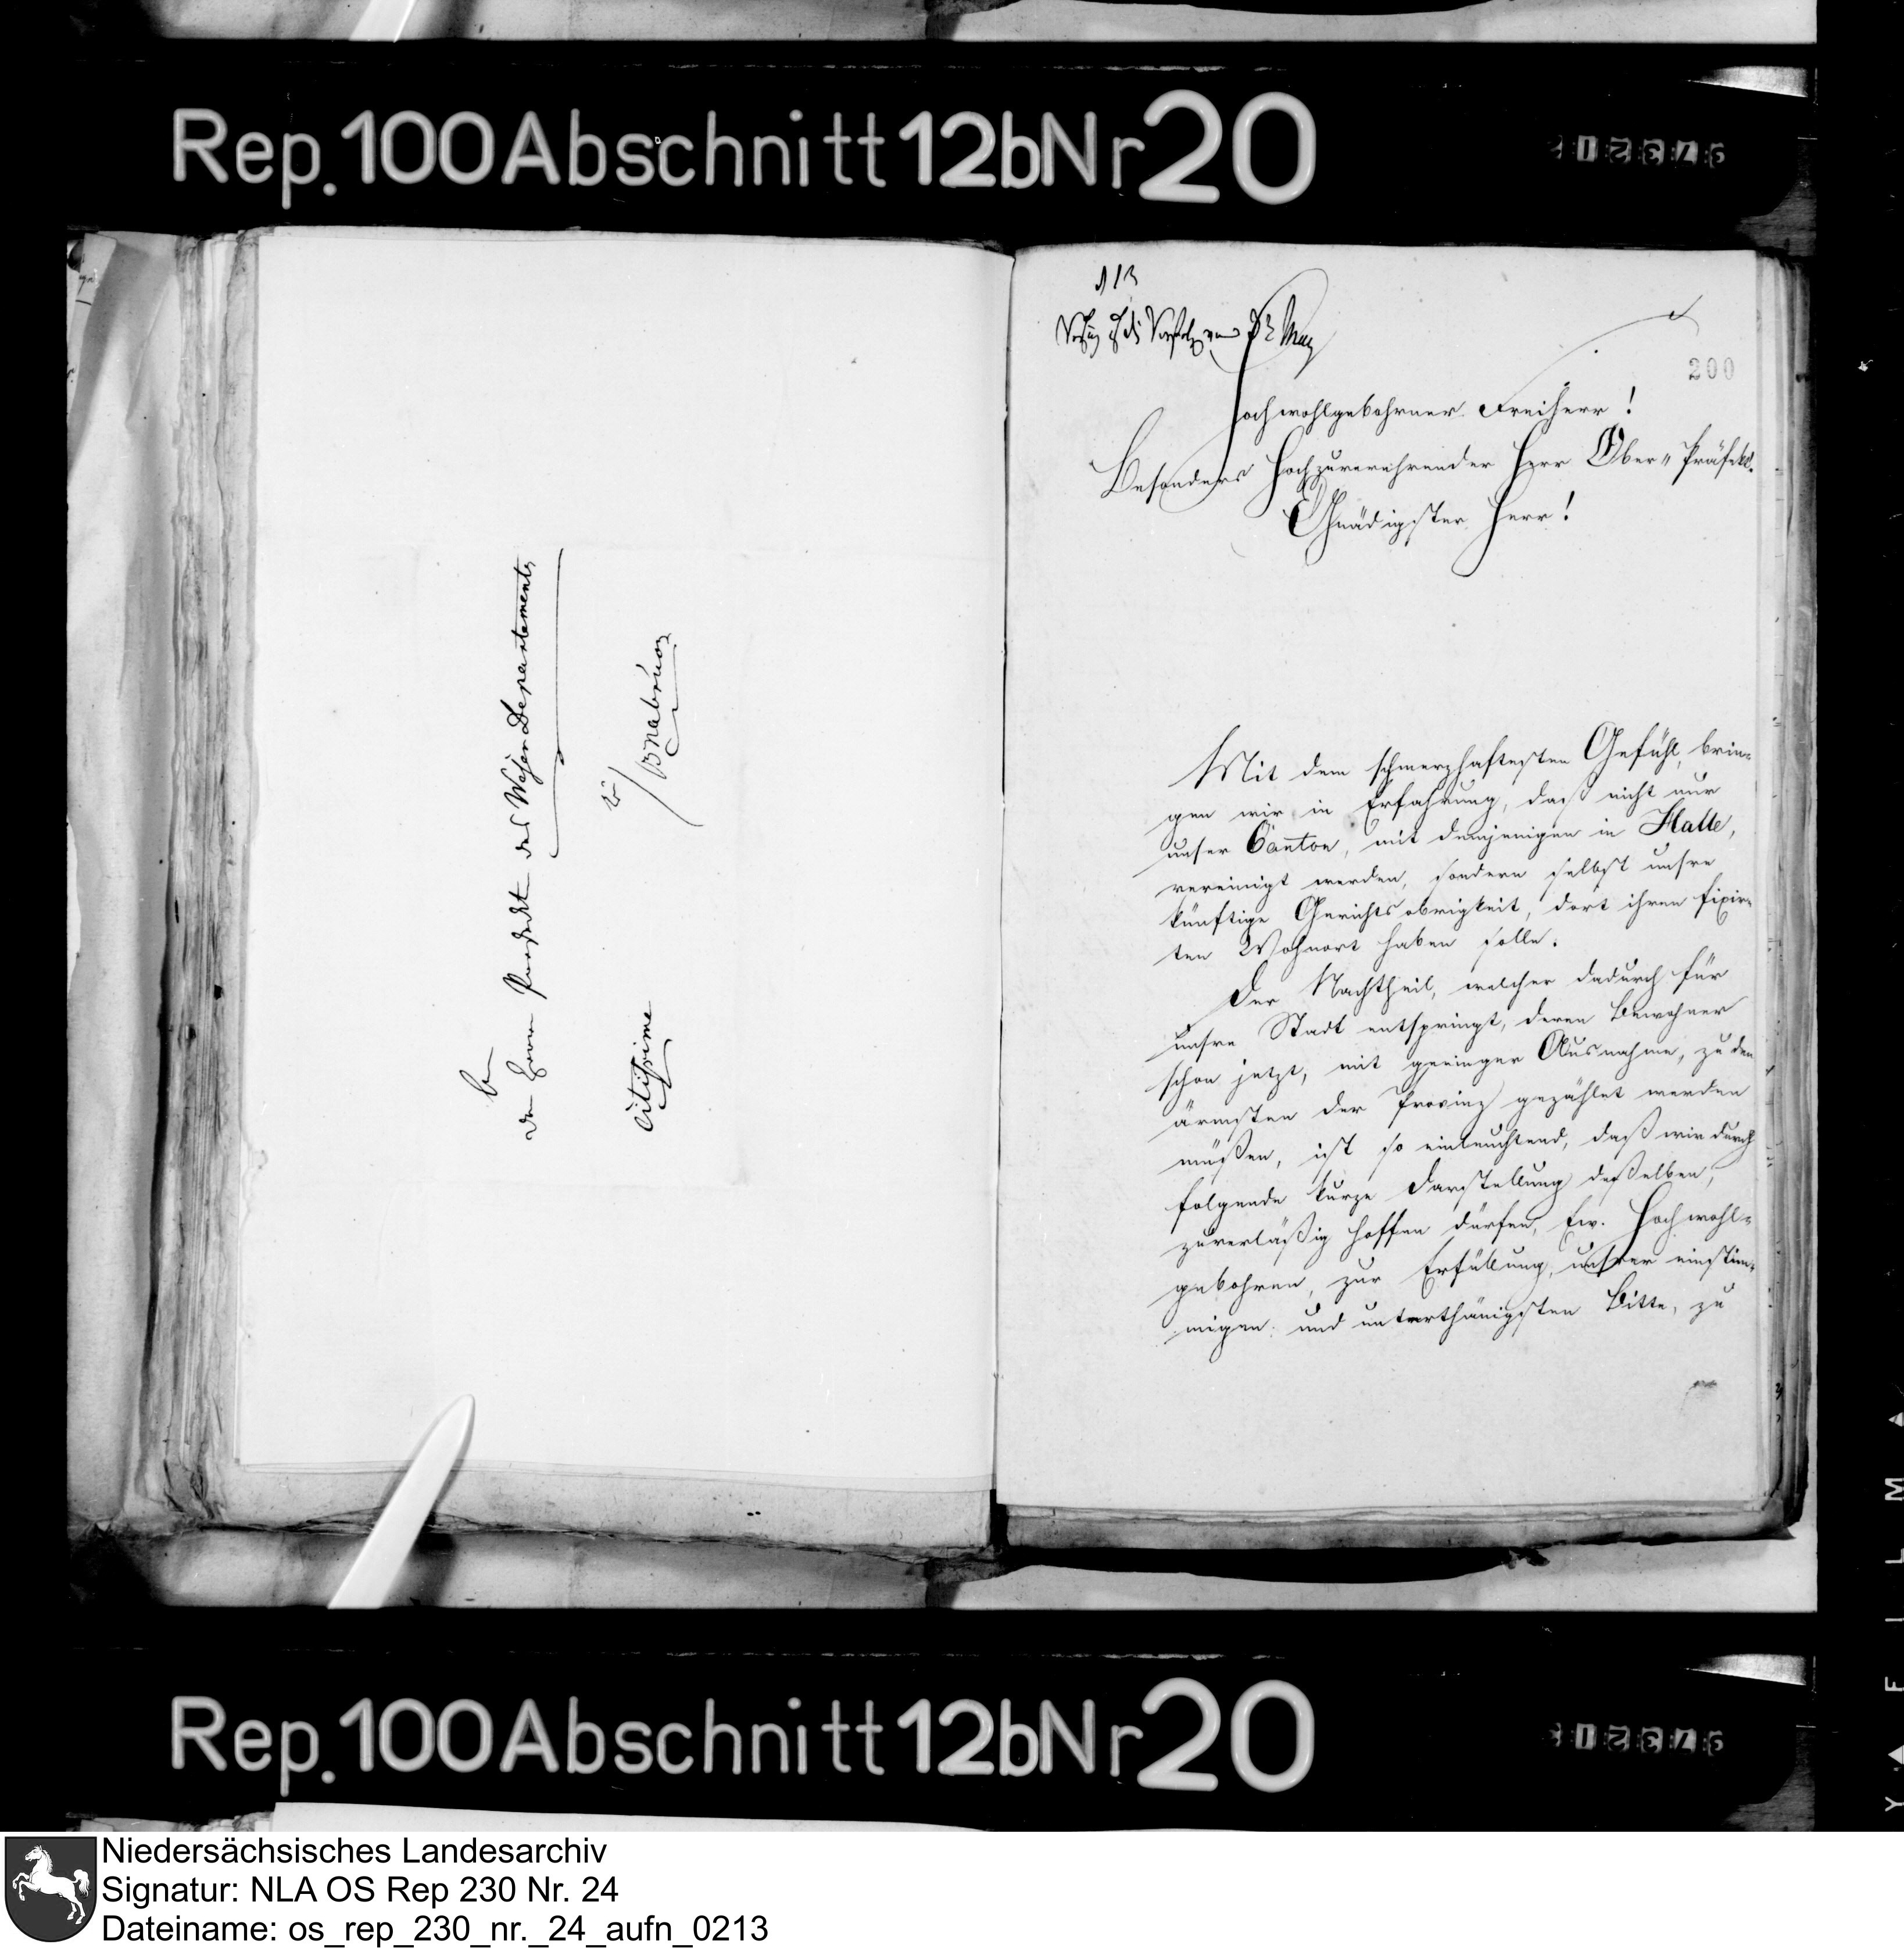 Rep. 100 Abschnitt 12b Nr 20
den Herrn Präfeckt des Weser Departements
Osnabrück
Citissime
200
Hochwohlgebohrner Freiherr!
Besonders Hochzuverehrender Herr Ober-Präfekt.
Gnädigster Herr!
Mit dem schmerzhaftesten Gefühl, brin-
gen wir in Erfahrung, daß nicht nur
unser Canton, mit demjenigen in Halle,
vereinigt werden, sondern selbst unsre
künftige Gerichtsobrigkeit, dort ihren fixir-
ten Wohnort haben solle.
Der Nachtheil, welcher dadurch für
unsre Stadt entspringt, deren Bewohner
schon jetzt, mit geringer Ausnahme, zu den
ärmsten der Provinz gezählet werden
müßen, ist so einleuchtend, daß wir durch
folgende kurze Darstellung deßelben,
zuverläßig hoffen dürfen, Ew. Hochwohl-
gebohren, zur Erfüllung, unsrer einstim-
migen und unterthänigsten Bitte, zu
Rep. 100 Abschnitt 12b Nr 20
Niedersächsisches Landesarchiv
Signatur: NLA OS Rep 230 Nr. 24
Dateiname: os_rep_230_nr._24_aufn_0213